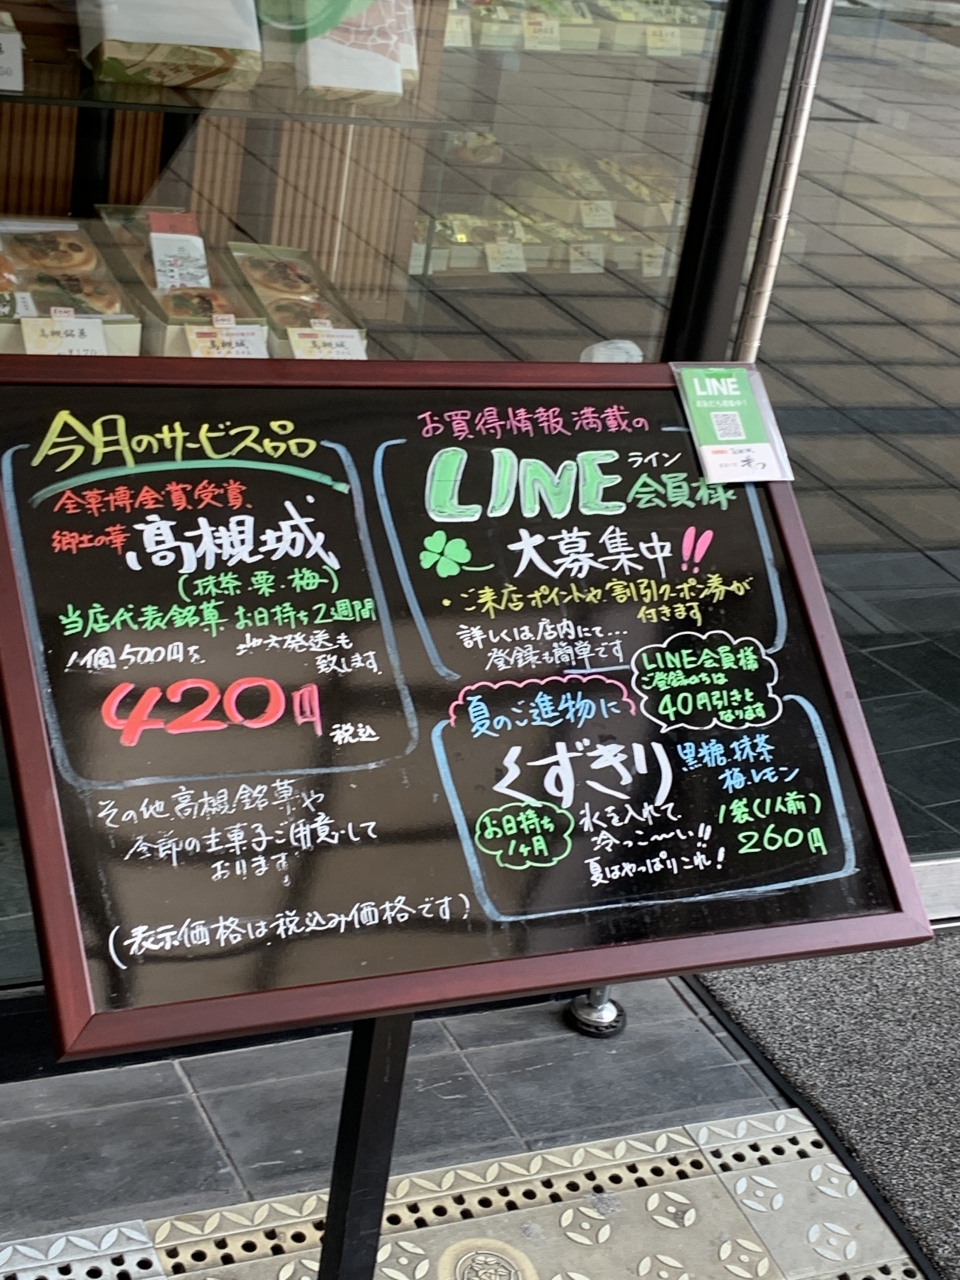 高槻銘菓
高槻城
高槻城
LINE
今月のサービス品
全菓博金賞受賞
郷土の華 高槻城
(抹茶・栗・梅)
当店代表銘菓 お日持ち2週間
1個500円を 地方発送も
致します
420円 税込
その他高槻銘菓や
季節の生菓子ご用意して
おります。
(表示価格は税込み価格です)
お買得情報満載の
LINE ライン 会員様
大募集中!!
・ご来店ポイントや割引クーポン券が
付きます
詳しくは店内にて…
登録も簡単です
LINE会員様
ご登録のちは
40円引きと
なります
夏のご進物に
くずきり
黒糖、抹茶
梅、レモン
お日持ち
1ヶ月
氷を入れて
冷っこ〜い!!
夏はやっぱりこれ!
1袋(1人前)
260円